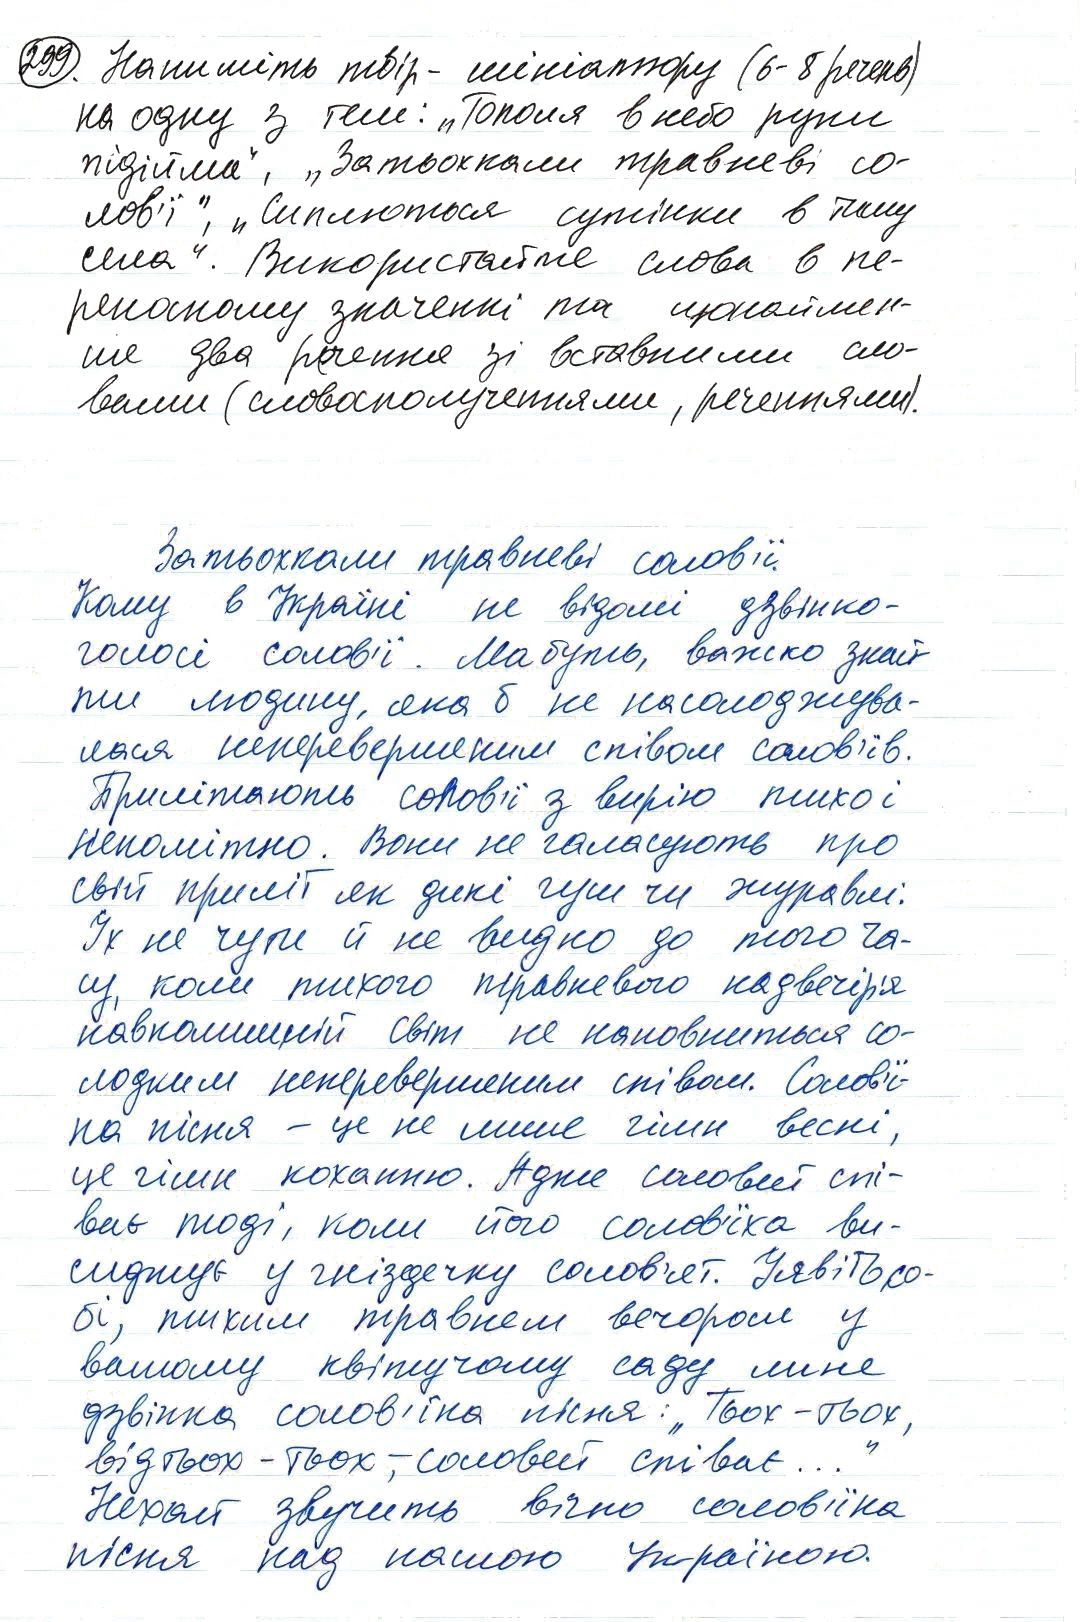 299. Напишіть твір-мініатюру (6-8 речень)
на одну з тем: „Тополя в небо руки
підійма", „Затьохкали травневі со-
лов'ї", „Сиплються сутінки в тишу
села". Використайте слова в пе-
реносному значенні та щонаймен-
ше два речення зі вставними сло-
вами (словосполученнями, реченнями).
Затьохкали травневі солов'ї.
Кому в Україні не відомі дзвінко-
голосі солов'ї. Мабуть, важко знай
ти людину, яка б не насолоджува-
лася неперевершеним співом солов'їв.
Прилітають солов'ї з вирію тихо і
непомітно. Вони не галасують про
свій приліт як дикі гуси чи журавлі.
Їх не чути й не видно до того ча-
су, коли тихого травневого надвечір'я
навколишній світ не наповниться со-
лодким неперевершеним співом. Солов'ї-
на пісня – це не лише гімн весні,
це гімн коханню. Адже соловей спі-
ває тоді, коли його солов'їха ви-
сиджує у гніздечку солов'ят. Уявіть со-
бі, тихим травнем вечором у
вашому квітучому саду лине
дзвінка солов'їна пісня: „Тьох-тьох,
відтьох-тьох,– соловей співає..."
Нехай звучить вічно солов'їна
пісня над нашою Україною.